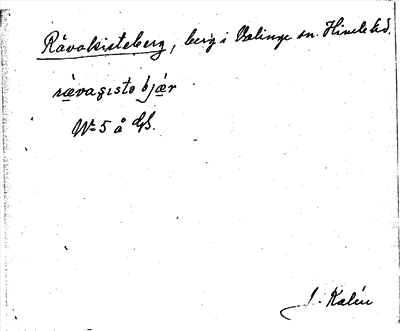 Rävakisteberg, berg i Valinge sn. Himle hd.
rävagiste bjär
W= 5 å GS.
J. Kalén